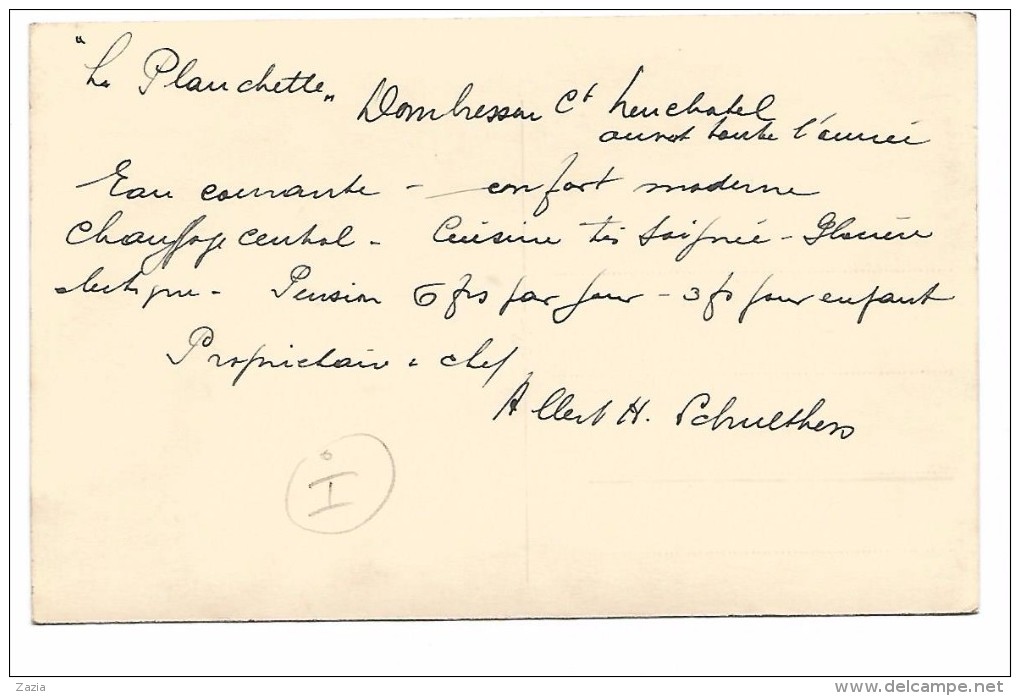 "La Planchette" Dombresson Ct Neuchatel
ouvert toute l'année
Eau courante - confort moderne
Chauffage central - Cuisine très soignée - Glacière
électrique - Pension 6 frs par jour - 3 frs pour enfant
Propriétaire - chef
Albert H. Schulthess
I
Zazia
www.delcampe.net